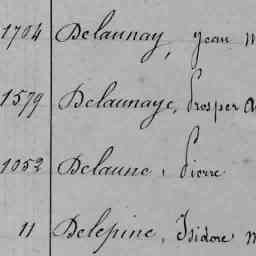 1704 Delaunay, Jean M
1579 Delaunaye, Prosper A
1052 Delaune, Pierre
11 Delepine, Isidore M